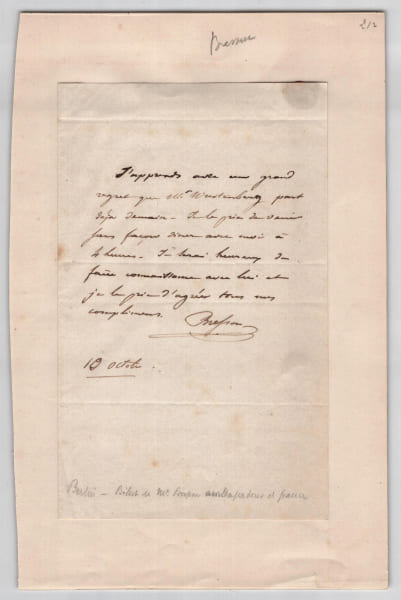 Bresson
212
J'apprends avec un grand
regret que Mr Westenberg part
déja demain – Je le prie de venir
sans façon diner avec moi à
4 heures. – Je serai heureux de
faire connaissance avec lui et
je le prie d'agréer tous mes
compliments.
Bresson
18 octobre.
Berlin – Billet de Mr. Bresson ambassadeur de france